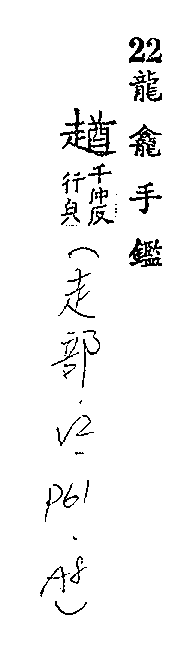 22龍龕手鑑
趥千仲反行皃
(走部.V2-P61.A8)